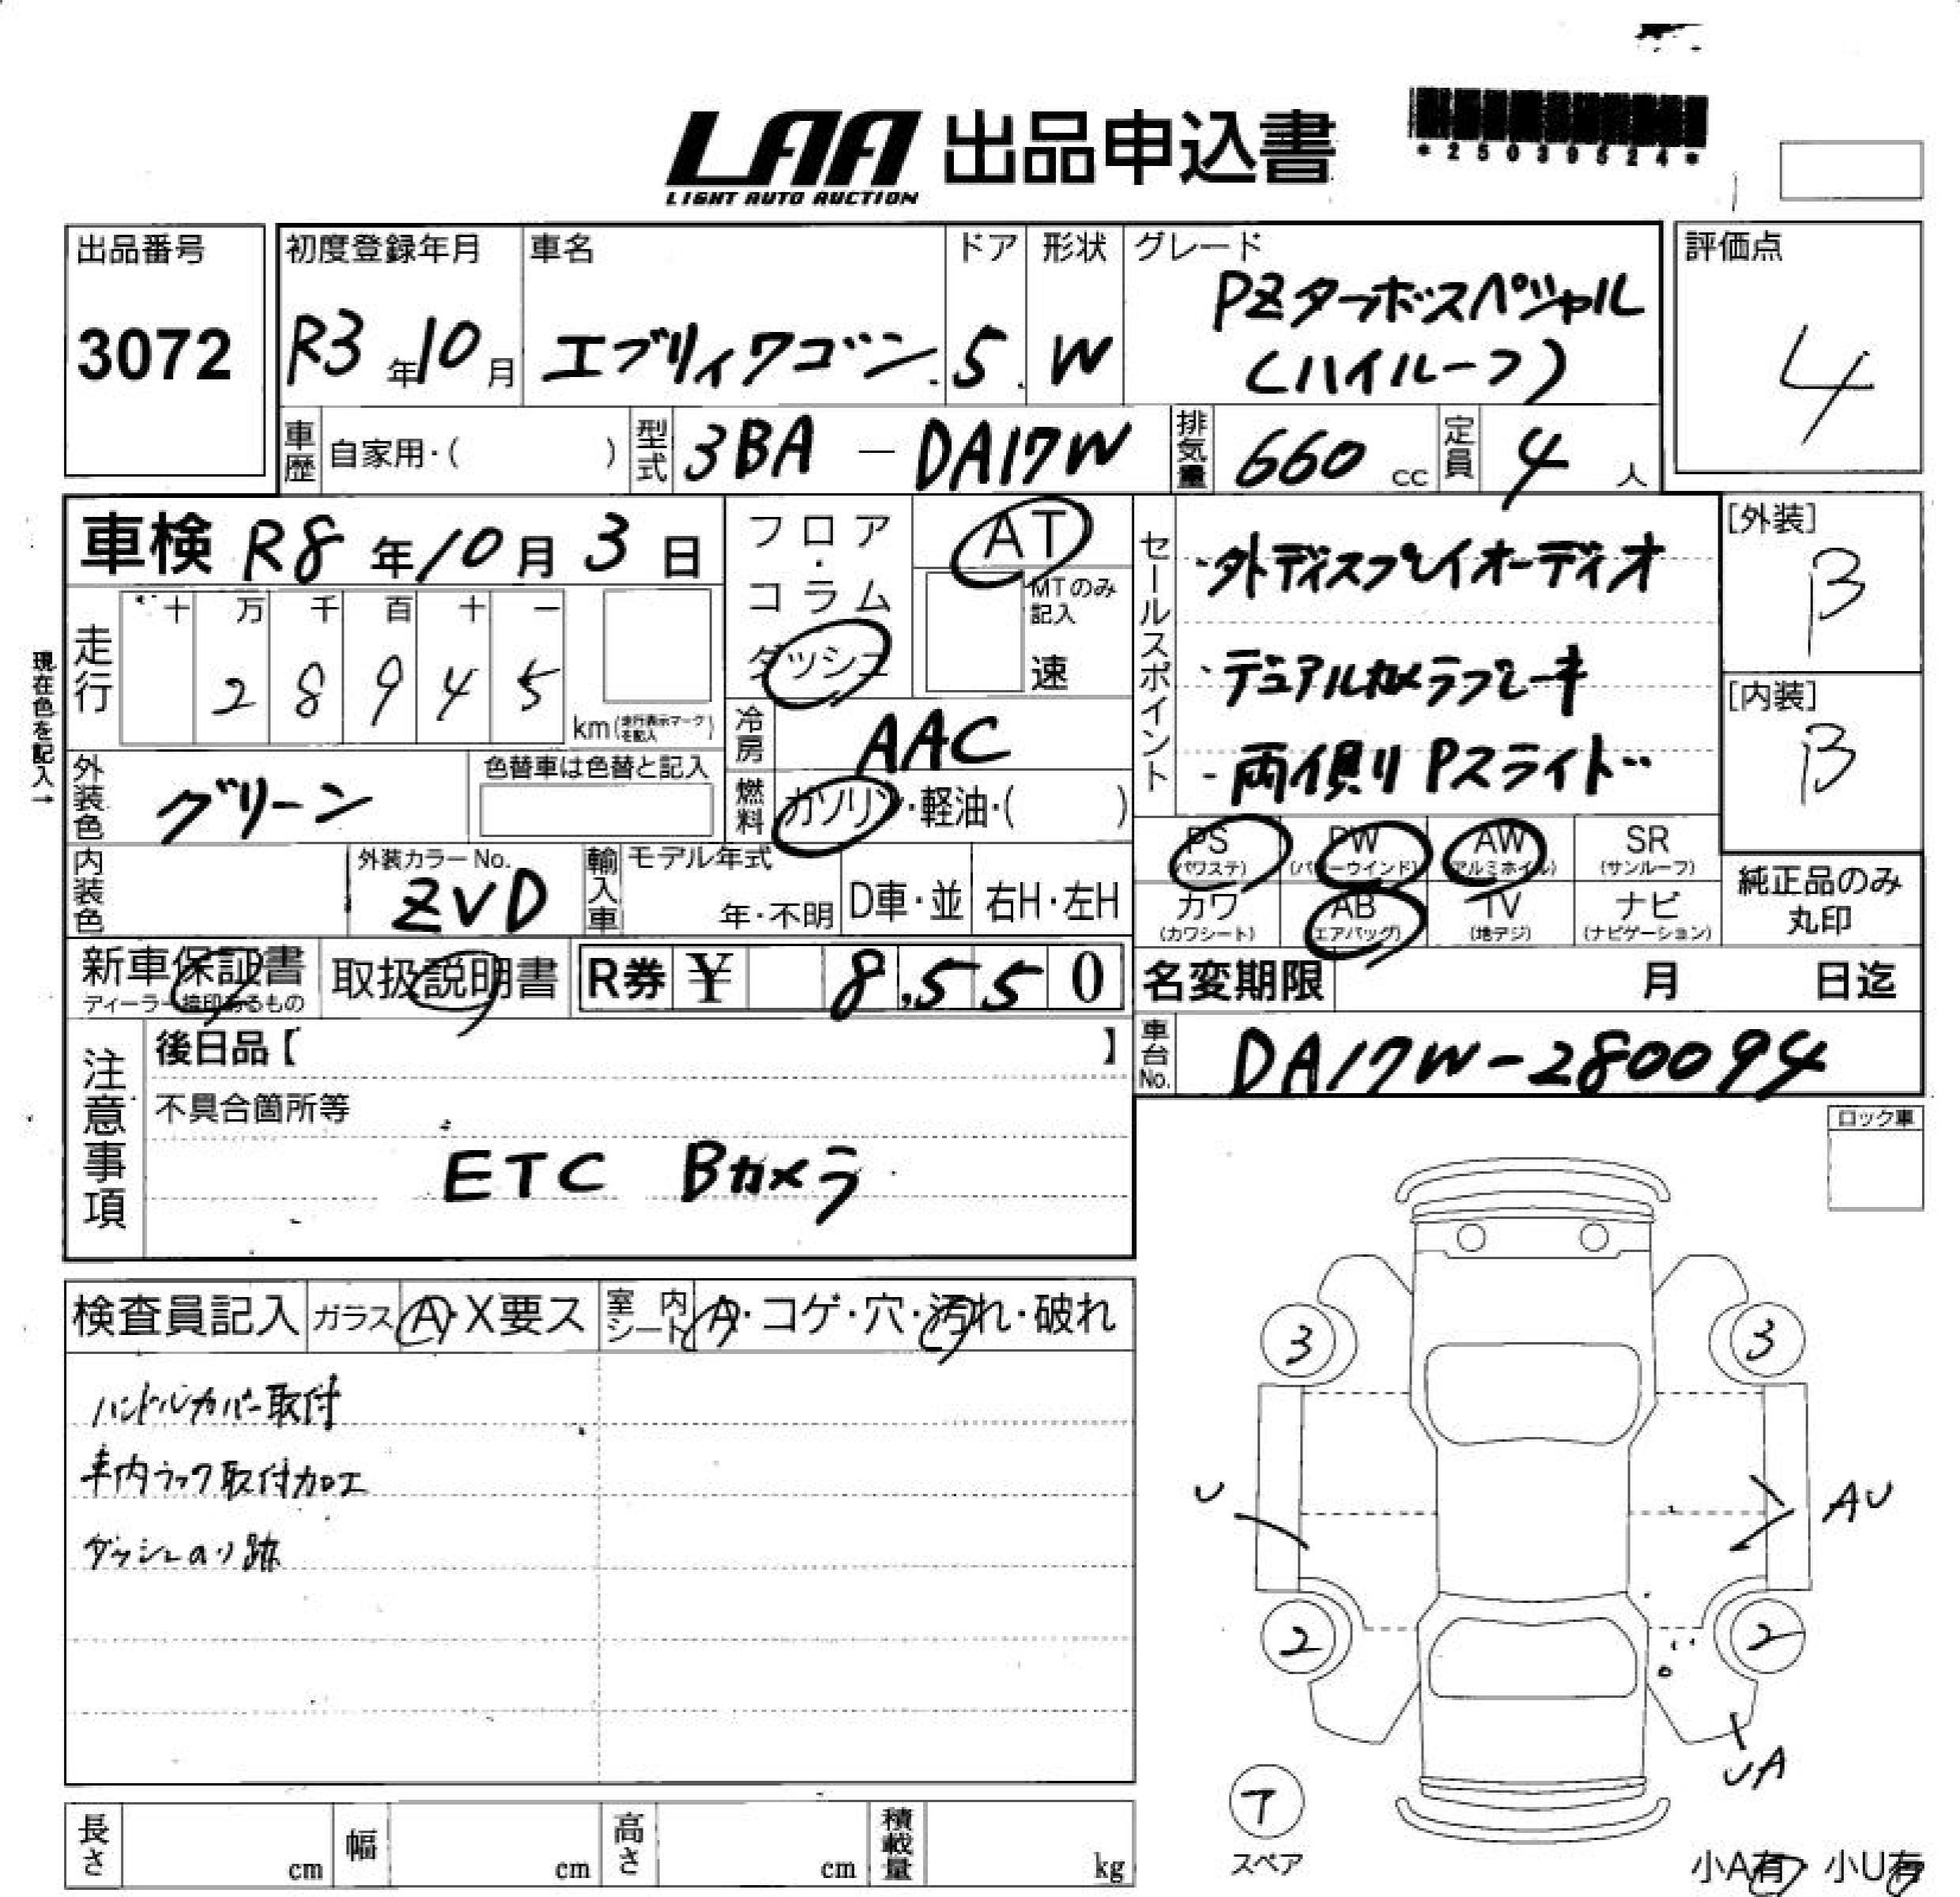 LAA 出品申込書
LIGHT AUTO AUCTION
*25039524*
出品番号
3072
初度登録年月
R3年10月
車名
エブリィワゴン
ドア
5
形状
W
グレード
PZターボスペシャル
(ハイルーフ)
評価点
4
車歴 自家用・( )
型式 3BA - DA17W
排気量 660 cc
定員 4 人
車検 R8年10月3日
フロア・コラム
ダッシュ
AT
MTのみ記入
速
セールスポイント
・外ディスプレイオーディオ
・デュアルカメラブレーキ
・両側りPスライド
[外装]
B
[内装]
B
現在色を記入→
走行
十 万 千 百 十 一
2 8 9 4 5
km (走行表示マークを記入)
冷房 AAC
外装色 グリーン
色替車は色替と記入
燃料 ガソリン・軽油・( )
内装色
外装カラーNo.
ZVD
輸入車
モデル年式
年・不明
D車・並
右H・左H
PS (パワステ)
PW (パワーウインド)
AW (アルミホイル)
SR (サンルーフ)
カワ (カワシート)
AB (エアバッグ)
TV (地デジ)
ナビ (ナビゲーション)
純正品のみ
丸印
新車保証書
ディーラー捺印あるもの
取扱説明書
R券 ¥ 8,550
名変期限 月 日迄
注意事項
後日品【 】
車台No. DA17W-280094
不具合箇所等
ETC Bカメラ
ロック車
検査員記入
ガラス A・X要ス
室内シート A・コゲ・穴・汚れ・破れ
ハンドルカバー取付
車内ラック取付加工
ダッシュのり跡
3
3
U
AU
2
2
UA
ア
スペア
小A有 小U有
長さ cm
幅 cm
高さ cm
積載量 kg